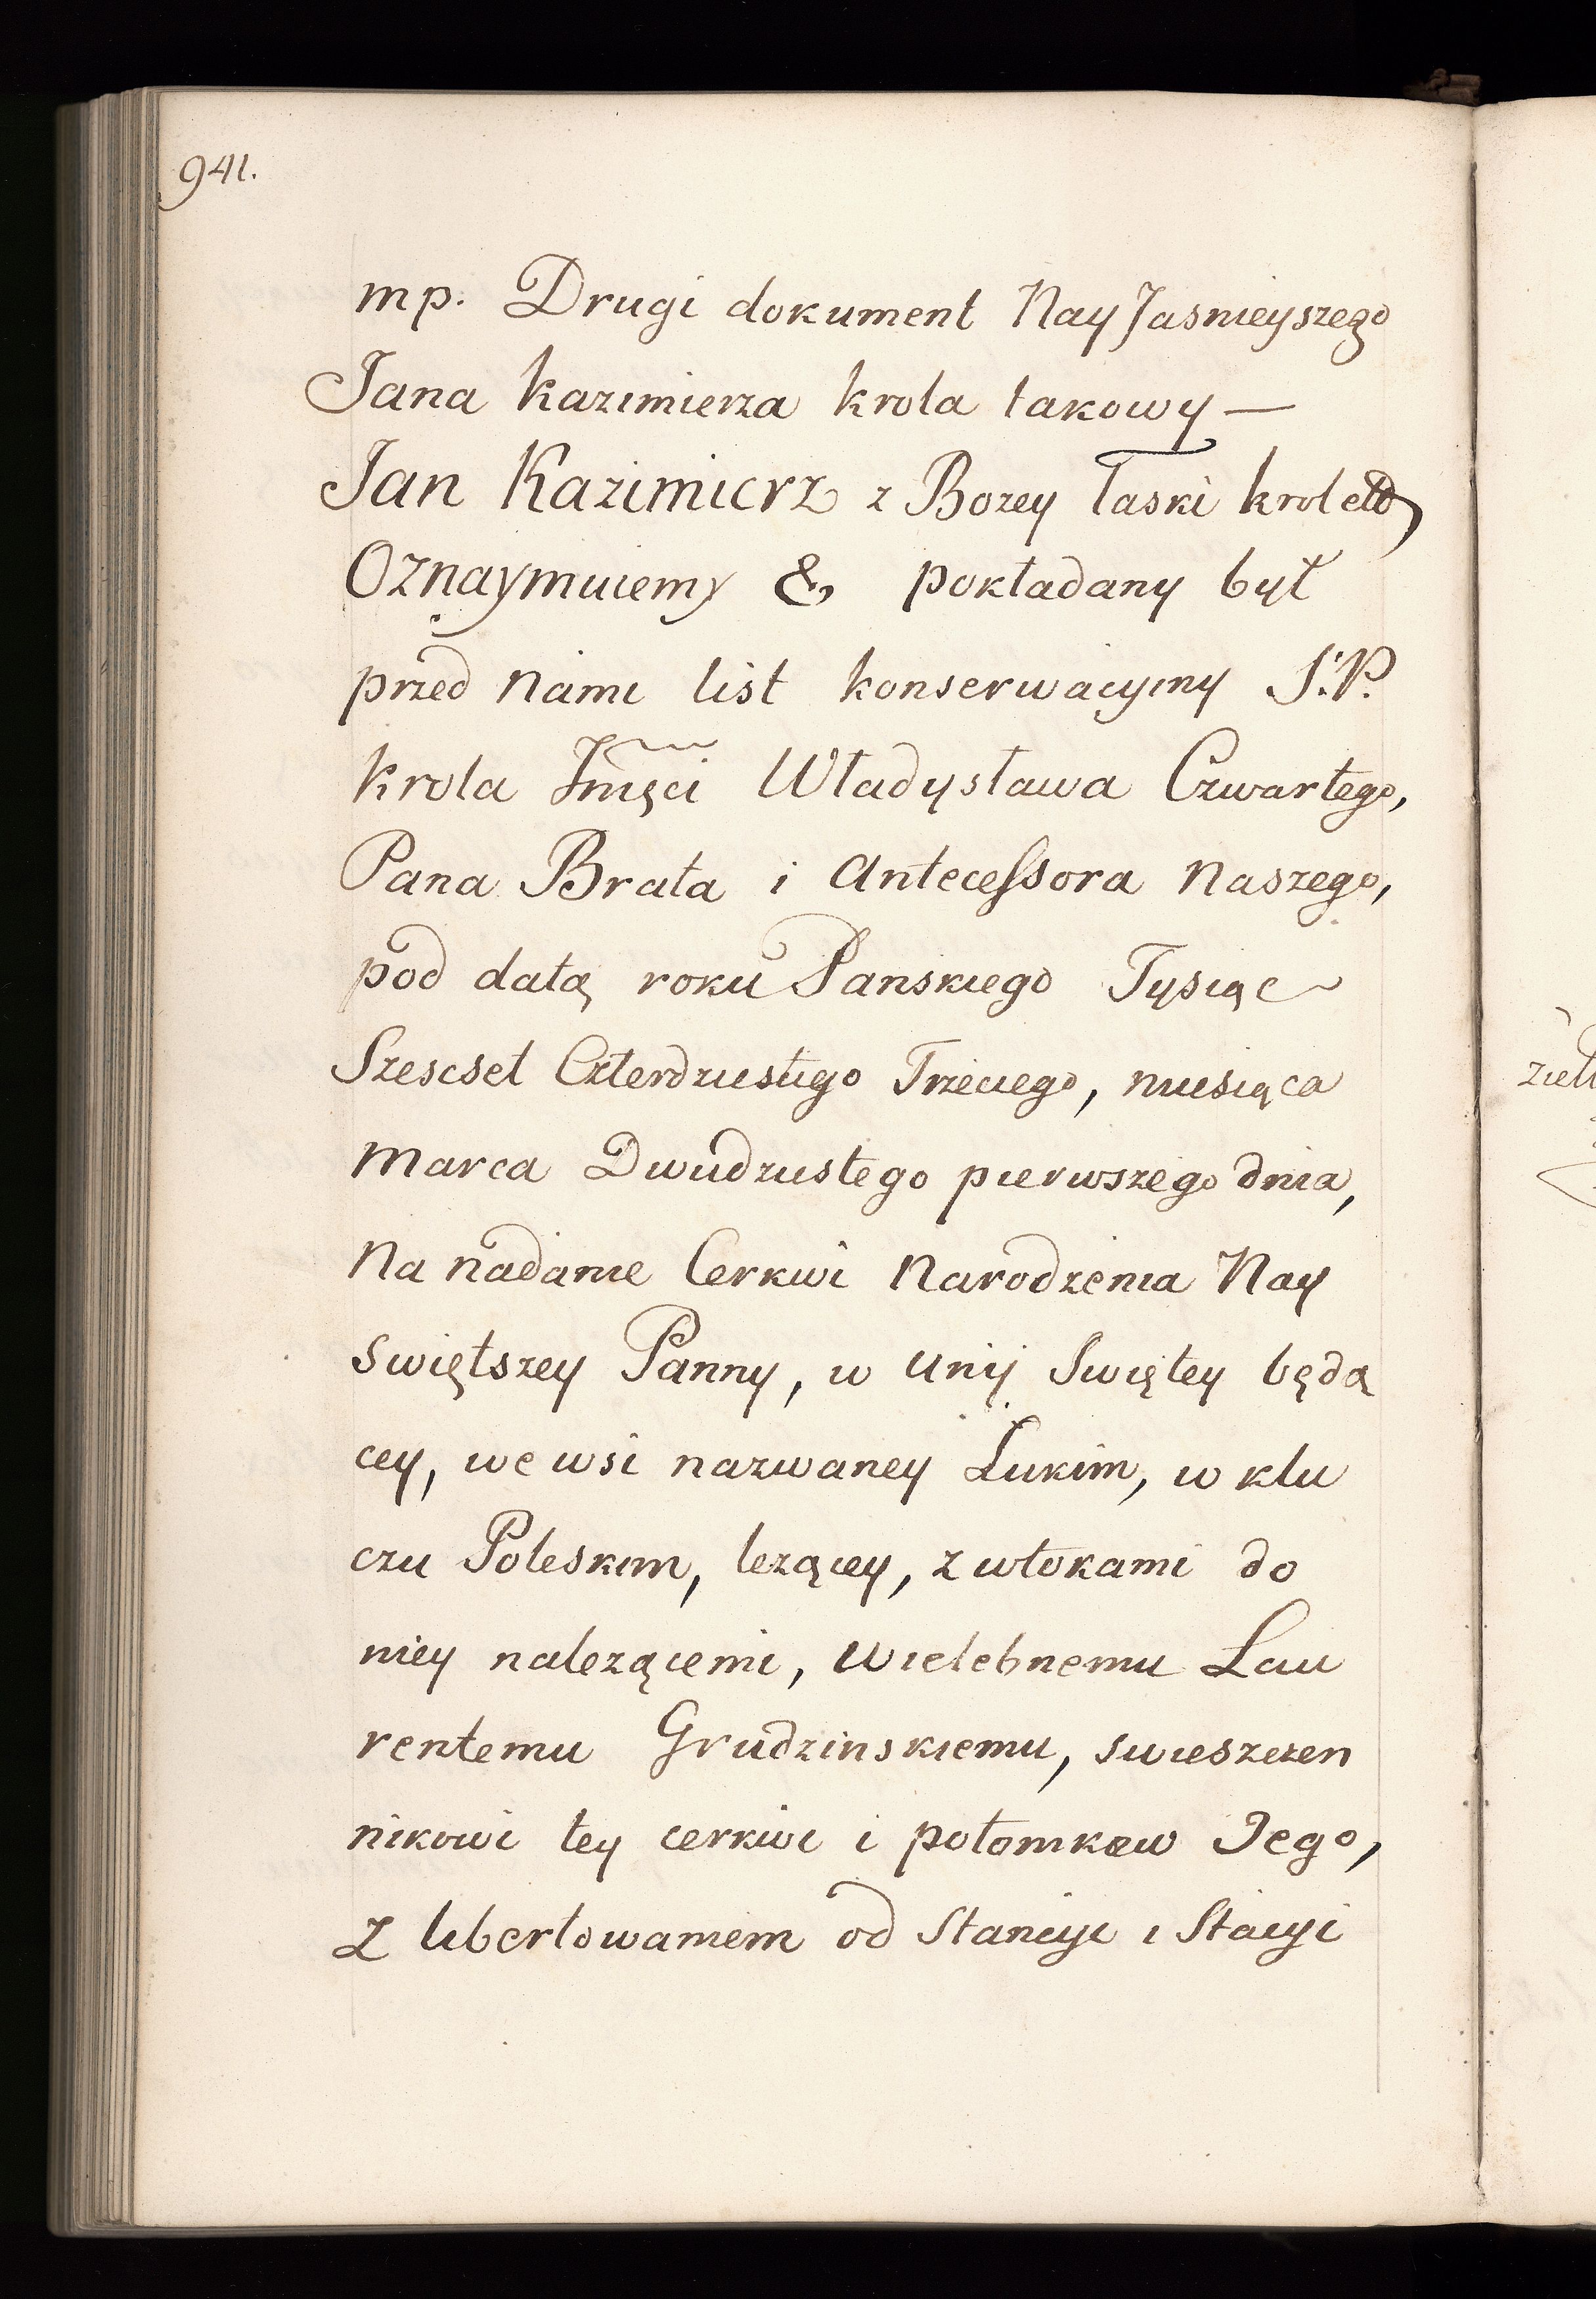 941.
mp. Drugi dokument NayJasnieyszego
Jana Kazimierza krola takowy —
Jan Kazimierz z Bozey łaski krol etc
Oznaymuiemy & pokładany był
przed nami list konserwacyiny S.P.
krola Jmści Władysława Czwartego,
Pana Brata i Antecessora Naszego,
pod datą roku Panskiego Tysiąc
Szescset Czterdziestego Trzeciego, miesiąca
Marca Dwudziestego pierwszego dnia,
Na nadanie Cerkwi Narodzenia Nay
swiętszey Panny, w Unij Swiętey będą
cey, we wsi nazwaney Łukim, w klu
czu Poleskim, lezącey, z włokami do
niey nalezącemi, Wielebnemu Lau
rentemu Grudzinskiemu, swieszczen
nikowi tey cerkwi i potomkow Jego,
z libertowaniem od Stancyi i Stacyi